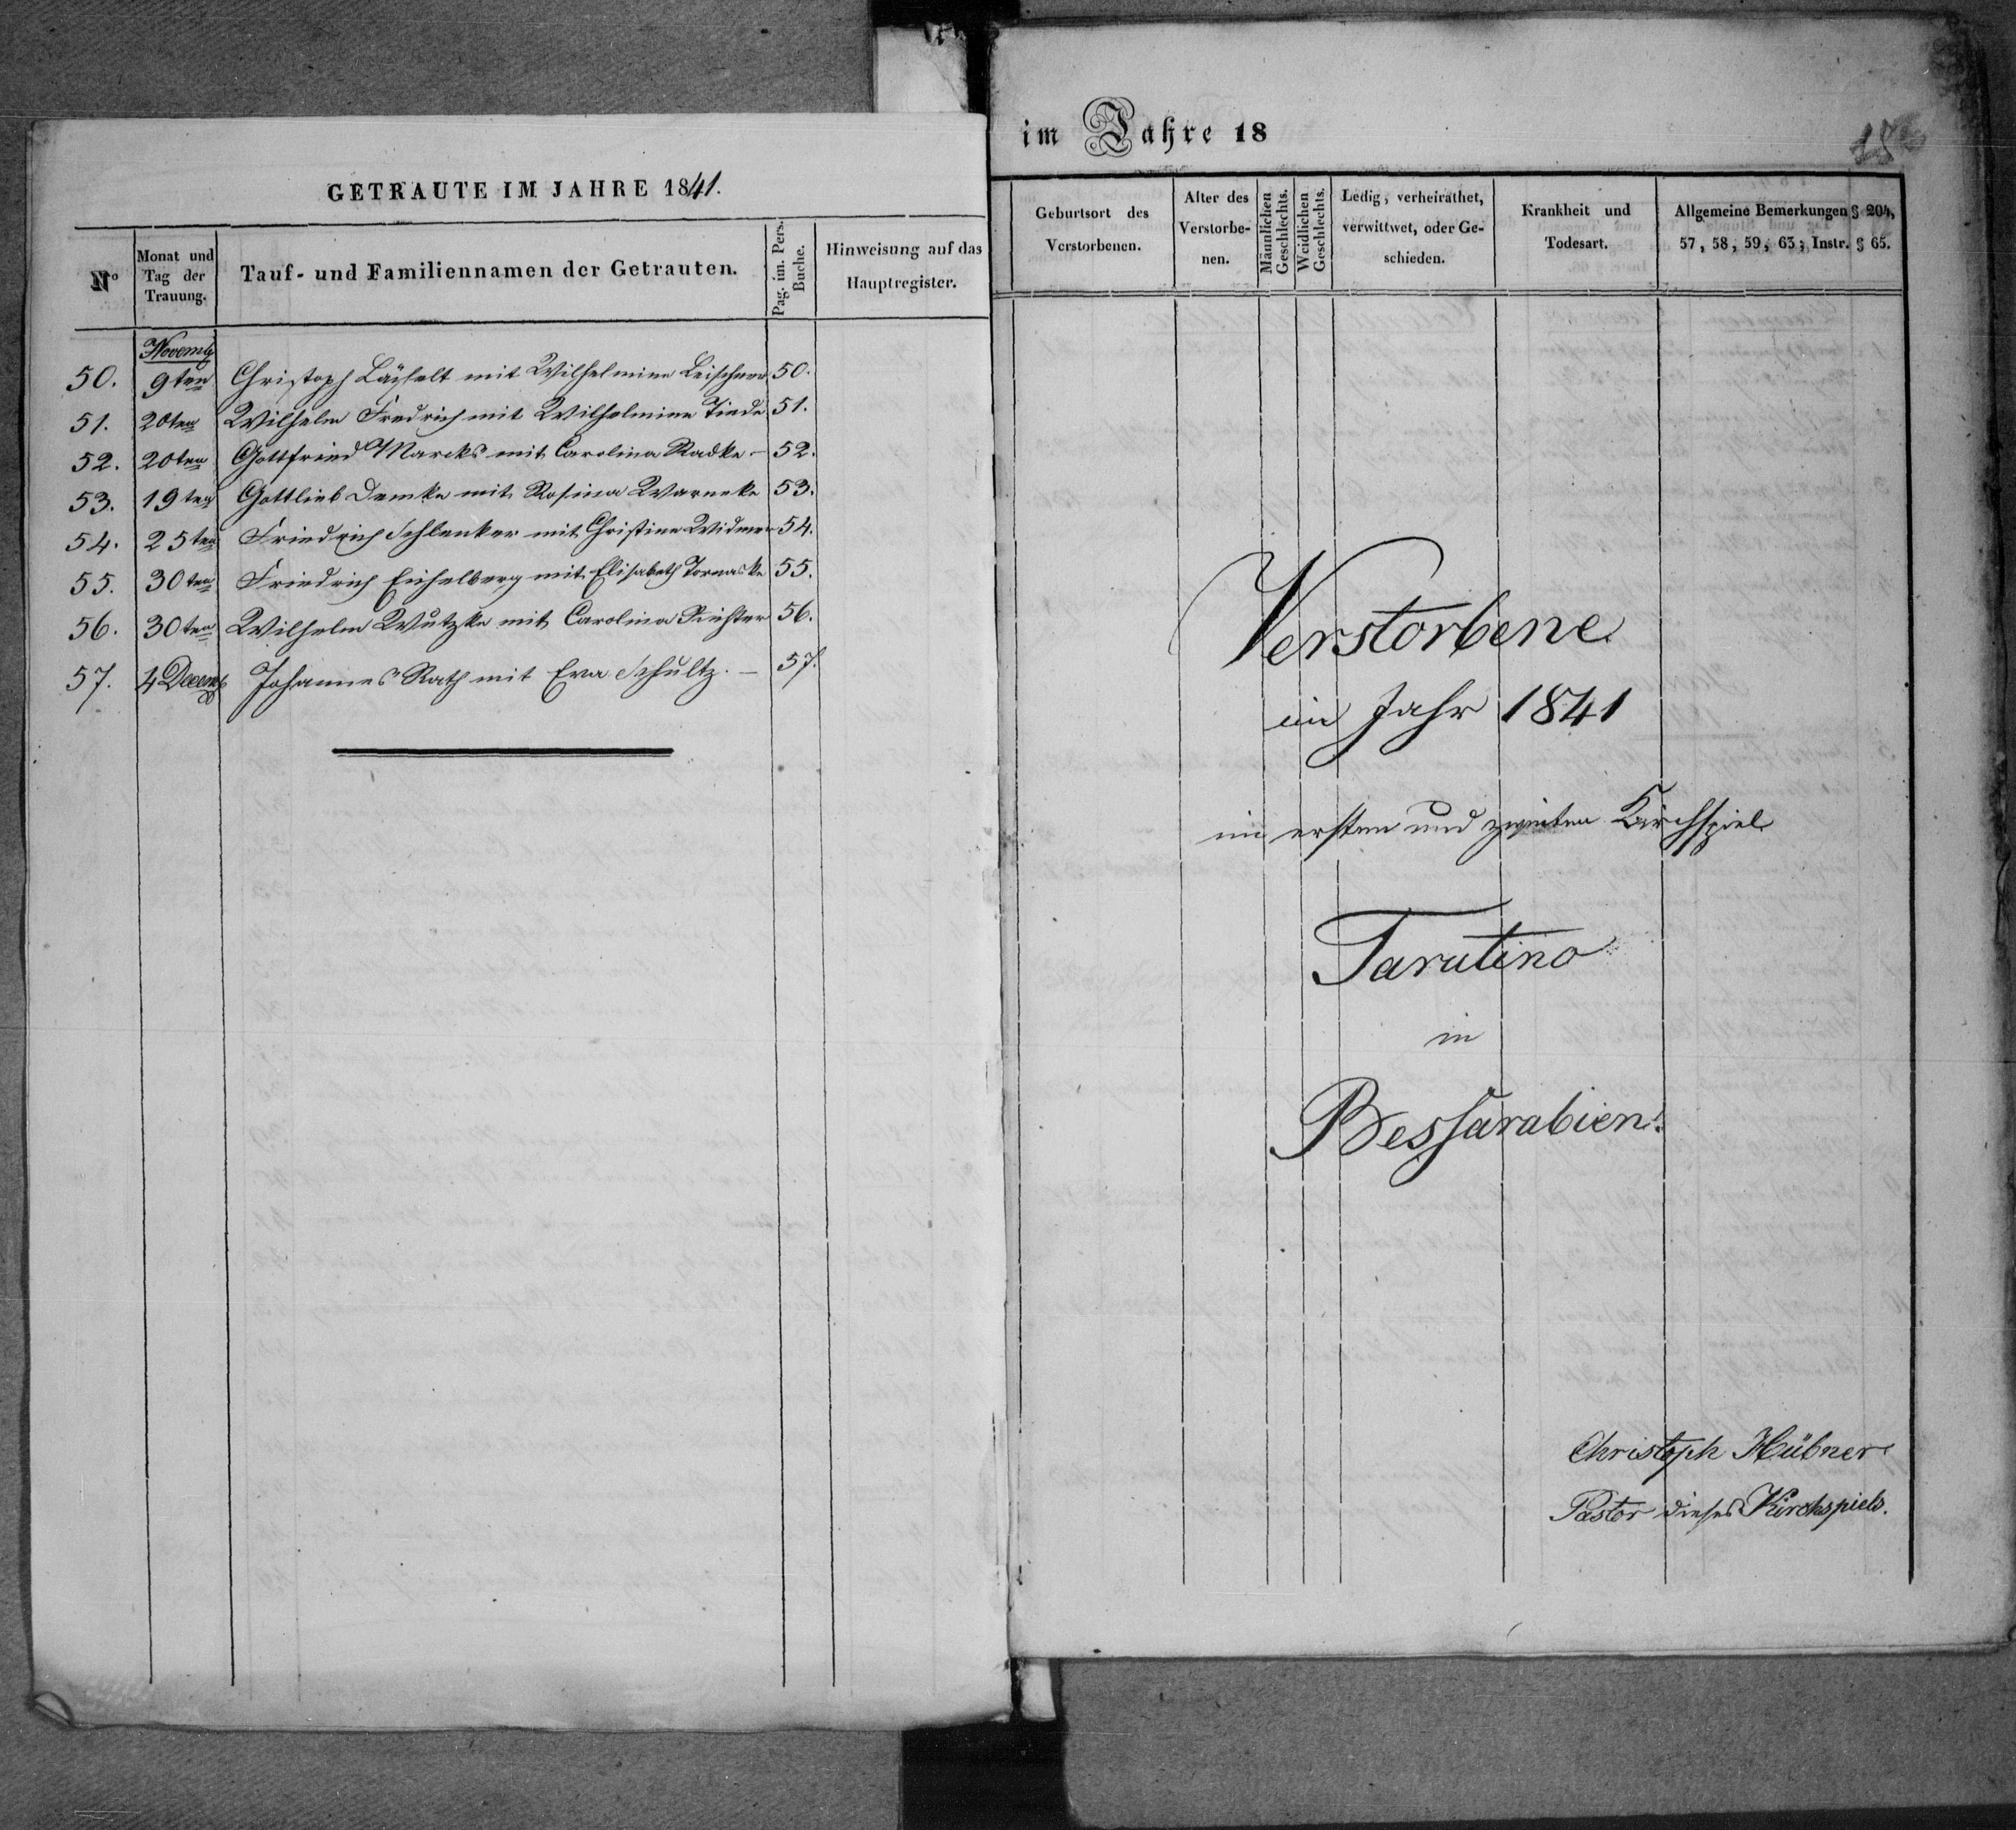 GETRAUTE IM JAHRE 1841.
No
Monat und Tag der Trauung.
Tauf- und Familiennamen der Getrauten.
Pag. im. Pers. Buche.
Hinweisung auf das Hauptregister.
Novemb
50. 9ten Christoph mit Wilhelmine Leischner 50.
51. 20ten Wilhelm Fredrich mit Wilhelmine Tiede 51.
52. 20ten Gottfried Marcks mit Carolina Radke – 52.
53. 19ten Gottlieb Demke mit Rosina Warneke 53.
54. 25ten Friedrich Schlenker mit Christine Widmer 54.
55. 30ten Friedrich Eichelberg mit Elisabeth Tornaske 55.
56. 30ten Wilhelm Wutzke mit Carolina Richter 56.
57. 4 Decemb Johannes Rath mit Eva Schultz. – 57.
im Jahre 18
Geburtsort des Verstorbenen.
Alter des Verstorbe-nen.
Männlichen Geschlechts.
Weidlichen Geschlechts.
Ledig, verheirathet, verwittwet, oder Ge-schieden.
Krankheit und Todesart.
Allgemeine Bemerkungen § 204, 57, 58, 59, 63; Instr. § 65.
Verstorbene
im Jahr 1841
im ersten und zweiten Kirchspiel
Tarutino
in
Bessarabien.
Christoph Hübner
Pastor dieses Kirchspiels.